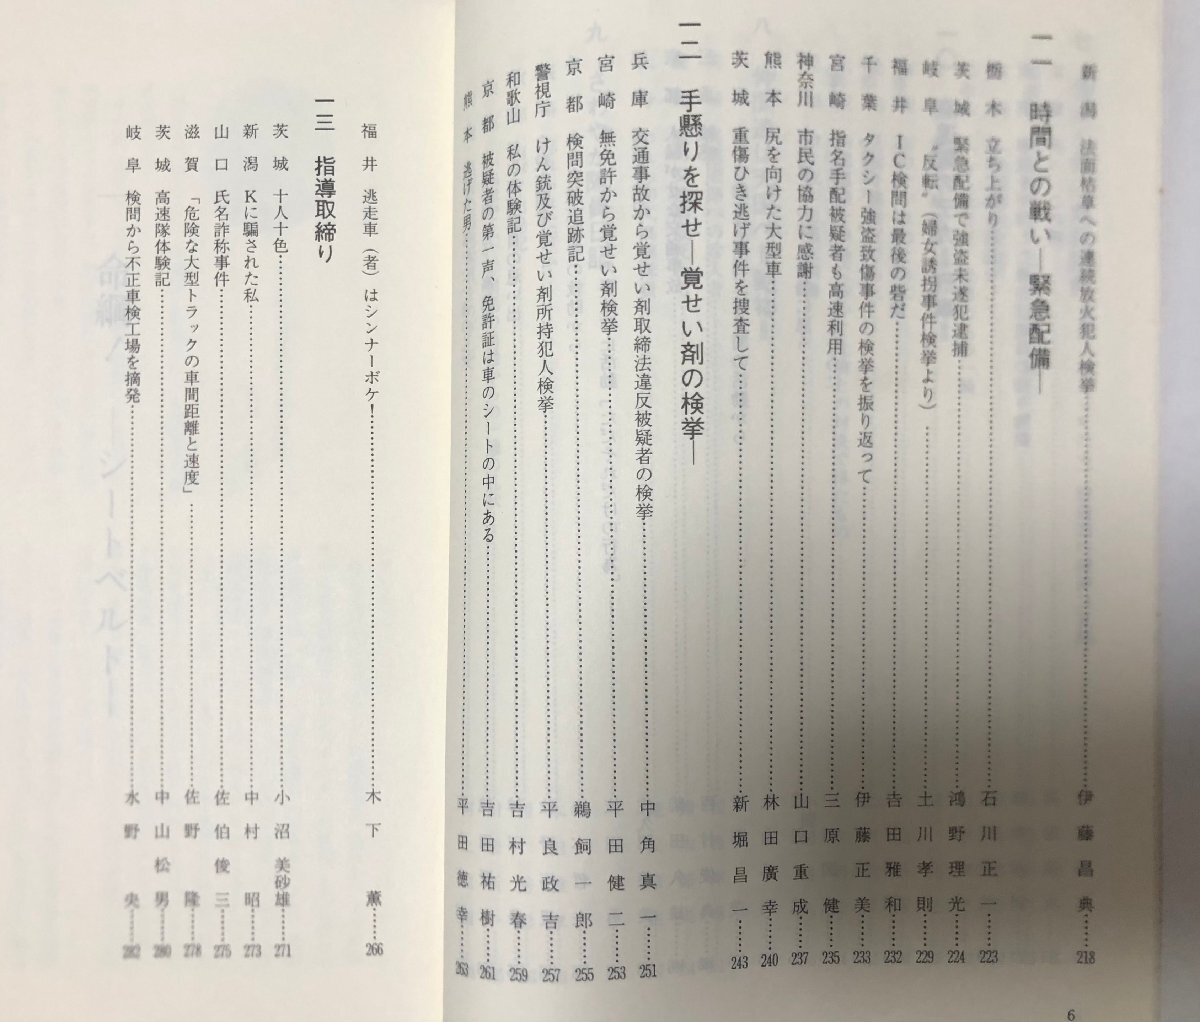 新潟 法面枯草への連続放火犯人検挙……伊藤昌典……218
一一 時間との戦い―緊急配備―
栃木 立ち上がり……石川正一……223
茨城 緊急配備で強盗未遂犯逮捕……鴻野理光……224
岐阜 〝反転〟(婦女誘拐事件検挙より)……土川孝則……229
福井 IC検問は最後の砦だ……吉田雅和……232
千葉 タクシー強盗致傷事件の検挙を振り返って……伊藤正美……233
宮崎 指名手配被疑者も高速利用……三原健……235
神奈川 市民の協力に感謝……山口重成……237
熊本 尻を向けた大型車……林田廣幸……240
茨城 重傷ひき逃げ事件を捜査して……新堀昌一……243
一二 手懸りを探せ―覚せい剤の検挙―
兵庫 交通事故から覚せい剤取締法違反被疑者の検挙……中角真一……251
宮崎 無免許から覚せい剤検挙……平田健二……253
京都 検問突破追跡記……鵜飼一郎……255
警視庁 けん銃及び覚せい剤所持犯人検挙……平良政吉……257
和歌山 私の体験記……吉村光春……259
京都 被疑者の第一声、免許証は車のシートの中にある……吉田祐樹……261
熊本 逃げた男……平田徳幸……263
6
福井 逃走車(者)はシンナーボケ!……木下薫……266
一三 指導取締り
茨城 十人十色……小沼美砂雄……271
新潟 Kに騙された私……中村昭……273
山口 氏名詐称事件……佐伯俊三……275
滋賀 「危険な大型トラックの車間距離と速度」……佐野隆……278
茨城 高速隊体験記……中山松男……280
岐阜 検問から不正車検工場を摘発……水野央……282